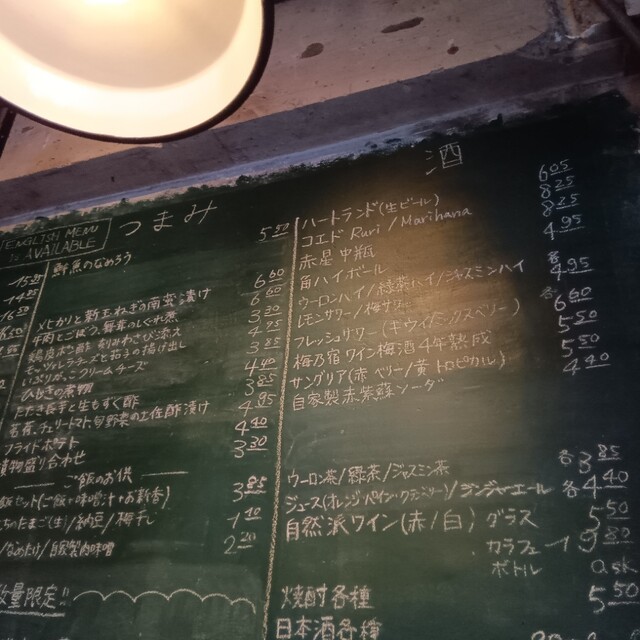 ENGLISH MENU
IS AVAILABLE
つまみ
鮮魚のなめろう 550
めじかりと新玉ねぎの南蛮漬け 660
牛肉とごぼう、舞茸のしぐれ煮 660
330
495
いぶりがっこクリームチーズ 385
ひじきの煮物 440
たたき長芋と生もずく酢 385
茗荷、チェリートマト、旬野菜の土佐酢漬け 495
フライドポテト 440
漬物盛り合わせ 330
ご飯のお供
飯セット(ご飯・味噌汁・お新香) 385
たまご(生)/納豆/梅干し 110
/なめたけ/自家製肉味噌 220
数量限定!!
1540
酒
ハートランド(生ビール) 605
コエド Ruri / Marihana 825
赤星中瓶 825
角ハイボール 495
ウーロンハイ/緑茶ハイ/ジャスミンハイ 各495
レモンサワー/梅サワー
フレッシュサワー(キウイ/ミックスベリー) 各660
梅乃宿 ワイン梅酒 4年熟成 550
サングリア(赤 ベリー/黄 トロピカル) 550
自家製赤紫蘇ソーダ 440
ウーロン茶/緑茶/ジャスミン茶 各385
ジュース(オレンジ・パイン・クランベリー)/ジンジャーエール 各440
自然派ワイン(赤/白) グラス 550
カラフェ 1980
ボトル ask
焼酎各種 550
日本酒各種